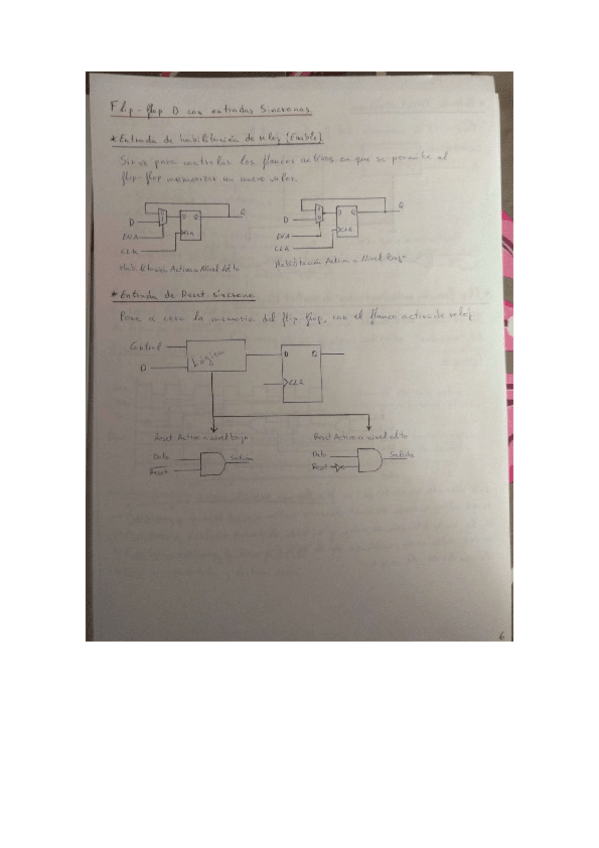 Flip-flop D con entradas Síncronas.
* Entrada de habilitación de reloj (Enable)
Sirve para controlar los flancos activos en que se permite al
flip-flop memorizar un nuevo valor.
D
D Q
Q
ENA
CLK
CLK
Habilitación Activa a Nivel alto
D
D Q
Q
ENA
CLK
CLK
Habilitación Activa a Nivel Bajo
* Entrada de Reset Síncrono.
Pone a cero la memoria del flip-flop, con el flanco activo de reloj
Control
D
Lógica
D Q
CLK
Reset Activo a nivel bajo
Dato
Reset
Salida
Reset Activo a nivel alto
Dato
Reset
Salida
6